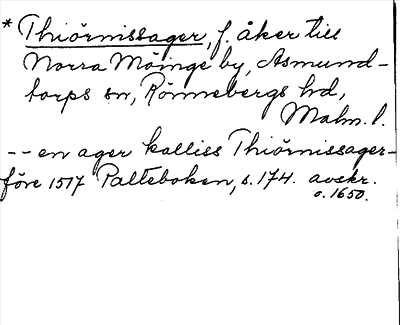 * Thiörnissager, f. åker till
Norra Möinge by, Asmund-
torps sn, Rönnebergs hd,
Malm. l.
-- en ager kalliss Thiörnissager -
före 1517 Palteboken, s. 174. avskr.
o. 1650.